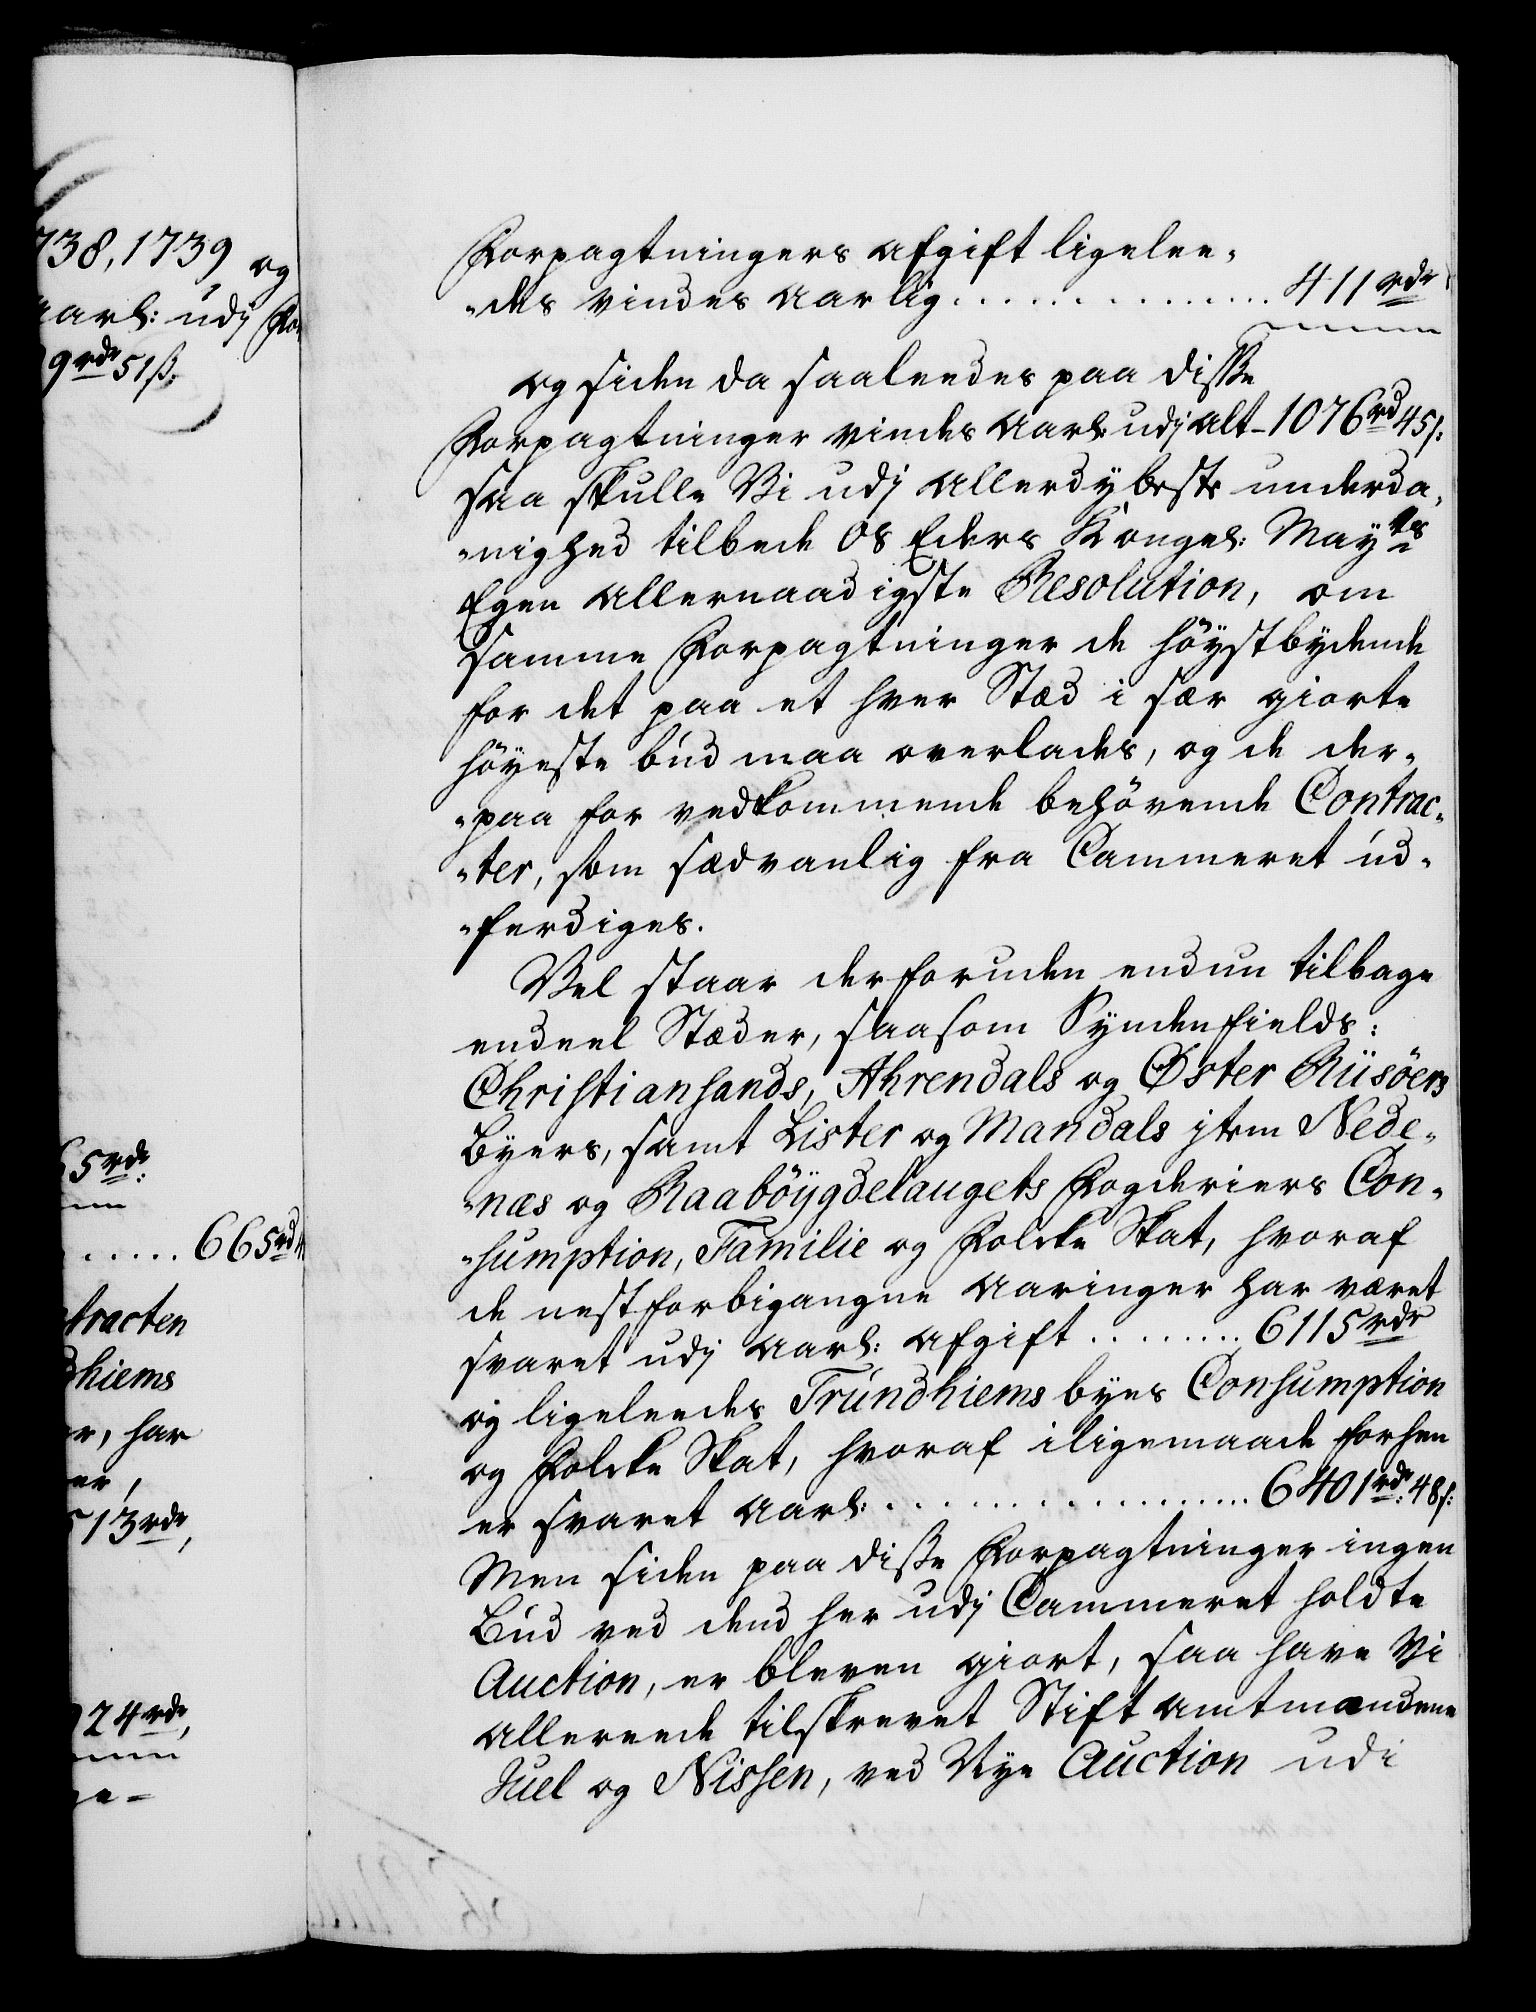 738, 1739 og
aarl: udj For
9 rdr 51 ß.
65 rdr:
..... 665 rd
tracten
dhiems
er, har
er,
513 rdr,
24 rdr,
Forpagtningers afgift ligelee-
-des vindes Aarlig . . . . . . . . . . . . . . 411 rdr
og siden da saaleedes paa disse
Forpagtninger vindes Aarl: udj alt - 1076 rd 45 s:
saa skulle Vi udj allerdybeste underda-
-nighed tilbede Os Eders Kongel: Mayts
Egen allernaadigste Resolution, om
samme Forpagtninger de höystbydende
for det paa et hver Stæd i sær giorte
höyeste bud maa overlades, og de der-
-paa for vedkommende behövende Contrac-
-ter, som sædvanlig fra Cammeret ud-
-ferdiges.
Vel staar derforuden endnu tilbage
endeel Stæder, saasom Syndenfields:
Christiansands, Ahrendals og Øster Riisöers
Byers, samt Lister og Mandals jtem Nede-
-næs og Raaböygdelaugets Fogderiers Con-
-sumption, Familie og Folcke Skat, hvoraf
de nestforbigangne Aaringer har været
svaret udj Aarl: afgift . . . . . . . . 6115 rdr
og ligeleedes Trundhiems byes Consumption
og Folcke Skat, hvoraf iligemaade forhen
er svaret Aarl: . . . . . . . . . . . . . . . . . 6401 rdr: 48 s:
Men siden paa disse Forpagtninger ingen
Bud ved dend her udj Cammeret holdte
Auction, er bleven giort, saa have Vi
allereede tilskrevet Stift amtmændene
Juel og Nissen, ved Nye Auction udi